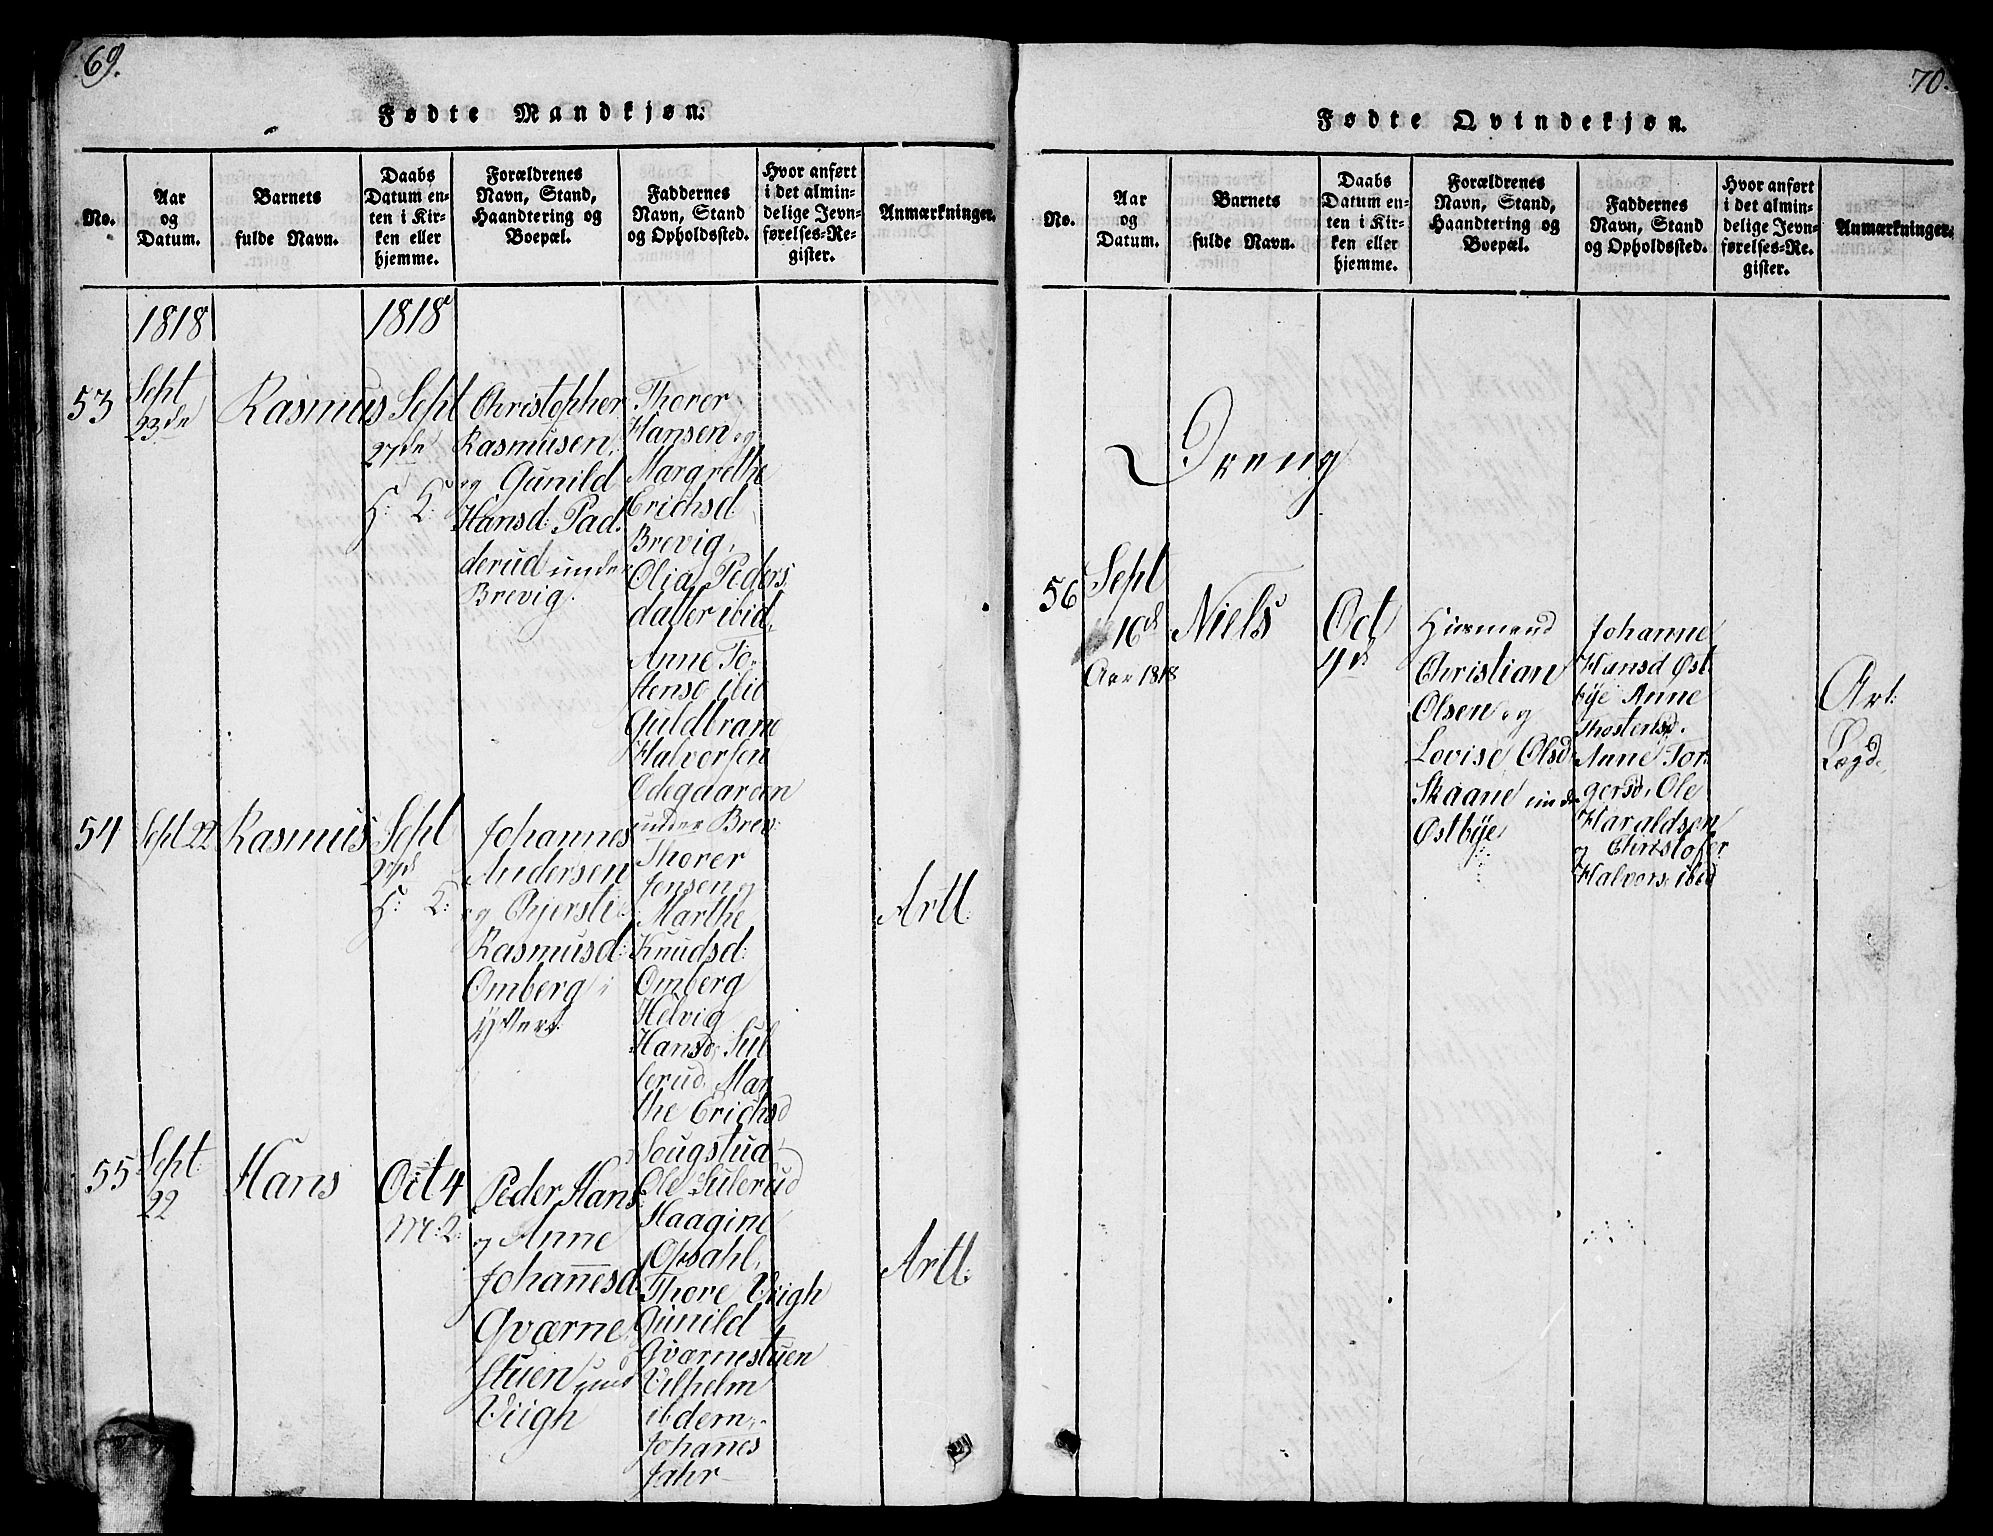 69.
Fødte Mandkjøn.
No.
Aar
og
Datum.
Barnets
fulde Navn.
Daabs
Datum en-
ten i Kir-
ken eller
hjemme.
Forældrenes
Navn, Stand,
Haandtering og
Boepæl.
Faddernes
Navn, Stand
og Opholdssted.
Hvor anført
i det almin-
delige Jevn-
førelses-Re-
gister.
Anmærkninger.
1818
1818
53
Sept
23de
Rasmus
Sept
27de
H: K:
Christopher
Rasmusen
og Gunild
Hansd: Pad-
derud under
Brevig.
Thorer
Hansen og
Margrethe
Erichsd
Brevig,
Olia Peders
datter ibid,
Anne To-
stensd ibid
Guldbrand
Halvorsen
Ødegaarden
under Brev:
54
Sept 22
Rasmus
Sept
27d
H: K:
Johannes
Andersen
og Chjersti
Rasmusd:
Omberg i
Thorer
Jensen og
Marthe
Knudsd:
Omberg
Helvig
Hansd, Sul
lerud, Mar
the Erichsd
Sougstua,
Ole Sulerud
Artl
55
Sept:
22
Hans
Oct 4
M: K:
Peder Hans
og Anne
Johanesd
Qværne
stuen und
Viigh
Haagine
Opsahl,
Thore Viigh
Gunild
Qværnestuen
Vilhelm
ibdem,
Johanes
Jahr
Artl:
70.
Fødte Qvindekjøn.
No.
Aar
og
Datum.
Barnets
fulde Navn.
Daabs
Datum en-
ten i Kir-
ken eller
hjemme.
Forældrenes
Navn, Stand,
Haandtering og
Boepæl.
Faddernes
Navn, Stand
og Opholdssted.
Hvor anført
i det almin-
delige Jevn-
førelses-Re-
gister.
Anmærkninger.
Dreng
56
Sept
16d
Aar 1818
Niels
Oct
4d
Huusmand
Christian
Olsen og
Lovise Olsd
Skaane under
Østbye
Johanne
Hansd Øst
bye Anne
Thostensd.
Anne Tor
gersd, Ole
Haraldsen
og Christofer
Halvors: ibid
Art:
Lægd,